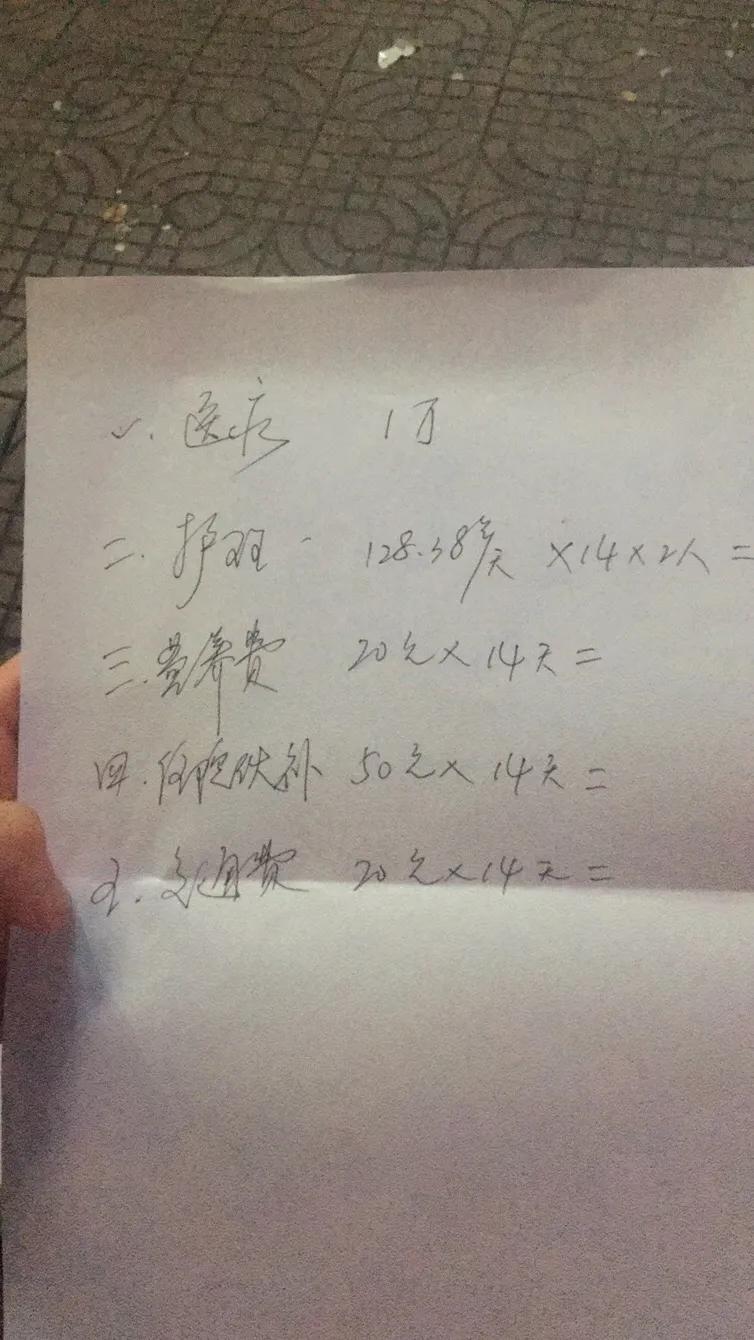 一. 医疗 1万
二. 护理 - 128.38元/天 ×14×2人=
三. 营养费 20元×14天=
四. 住院伙补 50元×14天=
五. 交通费 20元×14天=